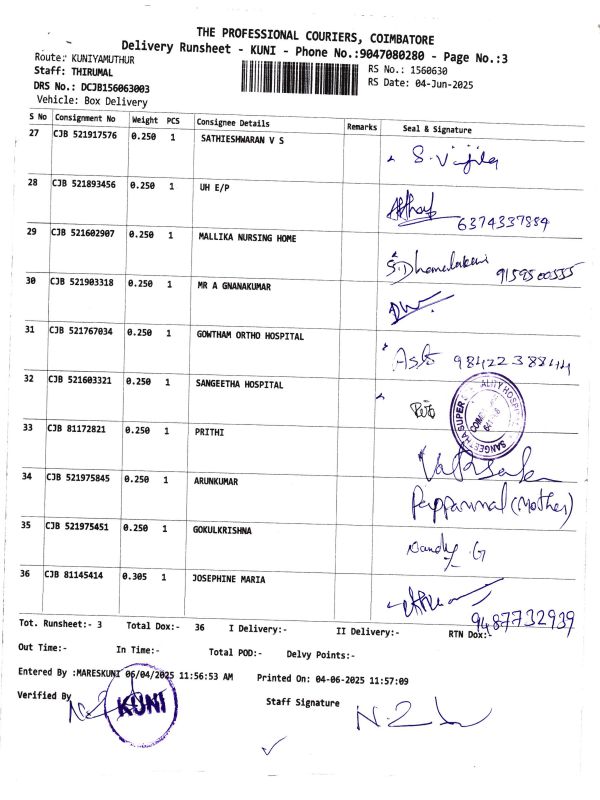 THE PROFESSIONAL COURIERS, COIMBATORE
Delivery Runsheet - KUNI - Phone No.:9047080280 - Page No.:3
Route: KUNIYAMUTHUR
RS No.: 1560630
Staff: THIRUMAL
RS Date: 04-Jun-2025
DRS No.: DCJB156063003
Vehicle: Box Delivery
S No Consignment No Weight PCS Consignee Details Remarks Seal & Signature
27 CJB 521917576 0.250 1 SATHIESHWARAN V S
S. Vijila
28 CJB 521893456 0.250 1 UH E/P
6374337889
29 CJB 521602907 0.250 1 MALLIKA NURSING HOME
S. Dhanalakshmi 9159500555
30 CJB 521903318 0.250 1 MR A GNANAKUMAR
31 CJB 521767034 0.250 1 GOWTHAM ORTHO HOSPITAL
9842238844
32 CJB 521603321 0.250 1 SANGEETHA HOSPITAL
33 CJB 81172821 0.250 1 PRITHI
34 CJB 521975845 0.250 1 ARUNKUMAR
Pappammal (Mother)
35 CJB 521975451 0.250 1 GOKULKRISHNA
Nandy. G
36 CJB 81145414 0.305 1 JOSEPHINE MARIA
9487732939
Tot. Runsheet:- 3 Total Dox:- 36 I Delivery:- II Delivery:- RTN Dox:-
Out Time:- In Time:- Total POD:- Delvy Points:-
Entered By :MARESKUNI 06/04/2025 11:56:53 AM Printed On: 04-06-2025 11:57:09
Verified By KUNI Staff Signature